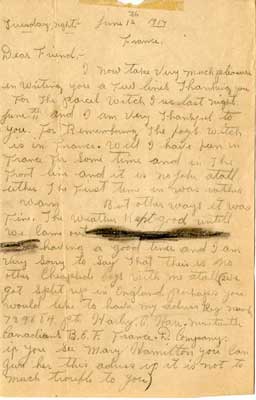 Tuesday night- June 12 1917
26
France.
Dear Friend,-
I now take very much pleasure
in writing you a few lines Thanking you
For The Parcel Witch I        last night
June 11 and I am Very Thankful to
you. For Remembering The boys Witch
is in France. Well I have been in
France for Some time and in The
Front line and it is no joke atall
either The First time in was rather
        But other ways it was
Fine. The Weather Kept good untill
we Came out
having a good time and I am
Very Sorry to Say That This is no
other            boys with me atall (We
got Split up in England perhaps you
would like to have my adress Reg no
            Pte
Canadians B.E.F. France. D. Company.
if you See Mary Hamilton you Can
give her this adress if it is not to
much trouble to you)